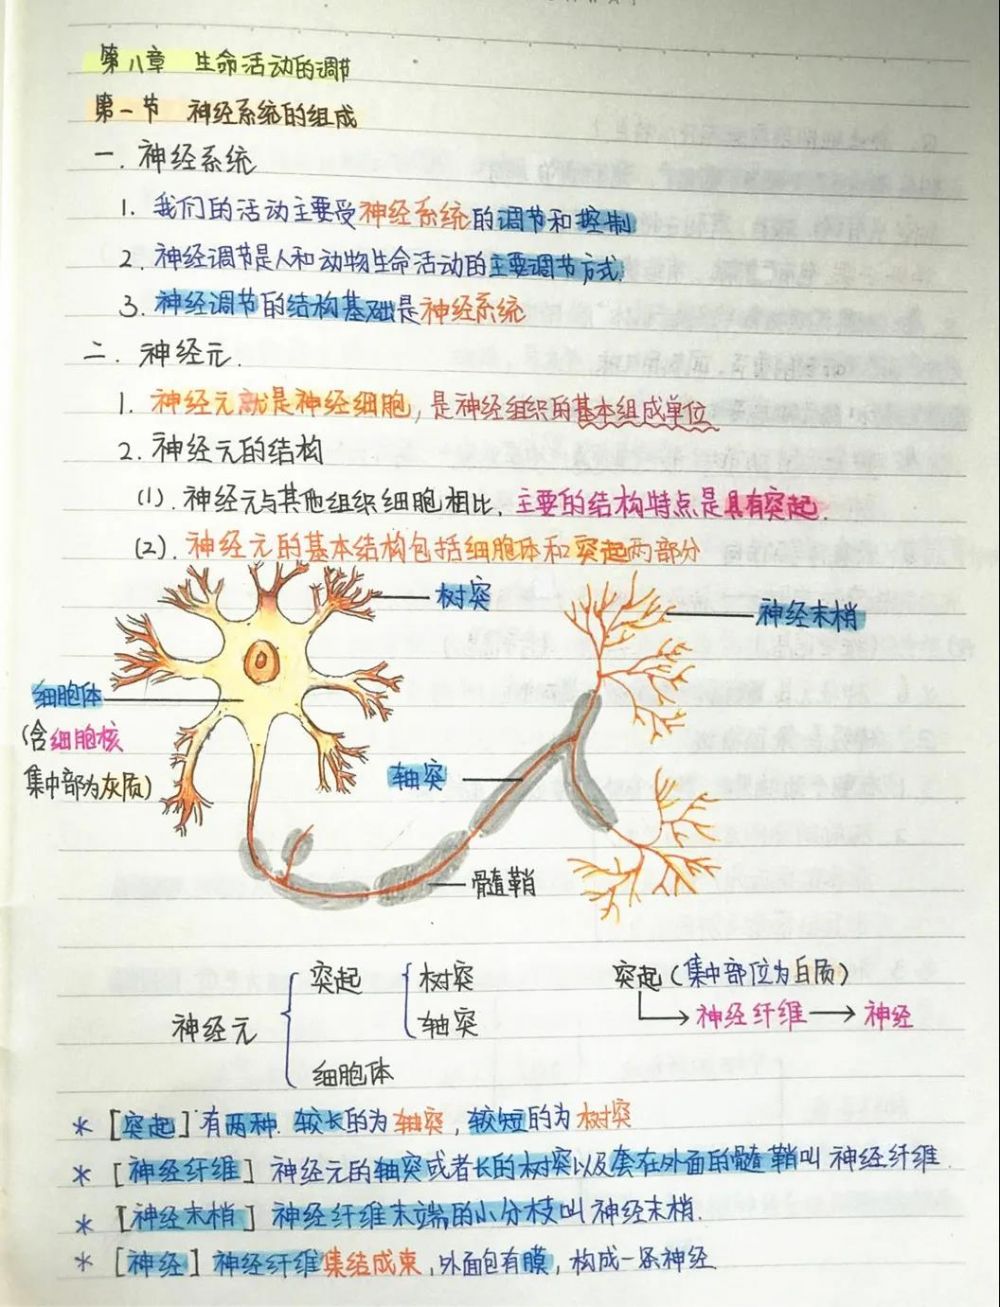 第八章 生命活动的调节
第一节 神经系统的组成
一. 神经系统
1. 我们的活动主要受神经系统的调节和控制
2. 神经调节是人和动物生命活动的主要调节方式.
3. 神经调节的结构基础是神经系统
二. 神经元.
1. 神经元就是神经细胞, 是神经组织的基本组成单位
2. 神经元的结构
(1). 神经元与其他组织细胞相比, 主要的结构特点是具有突起.
(2). 神经元的基本结构包括细胞体和突起两部分
树突
神经末梢
细胞体
(含细胞核
集中部为灰质)
轴突
髓鞘
突起 树突
突起(集中部位为白质)
轴突
神经纤维→神经
神经元
细胞体
* [突起] 有两种. 较长的为轴突, 较短的为树突
* [神经纤维] 神经元的轴突或者长的树突以及套在外面的髓鞘叫神经纤维.
* [神经末梢] 神经纤维末端的小分枝叫神经末梢.
* [神经] 神经纤维集结成束, 外面包有膜, 构成一条神经